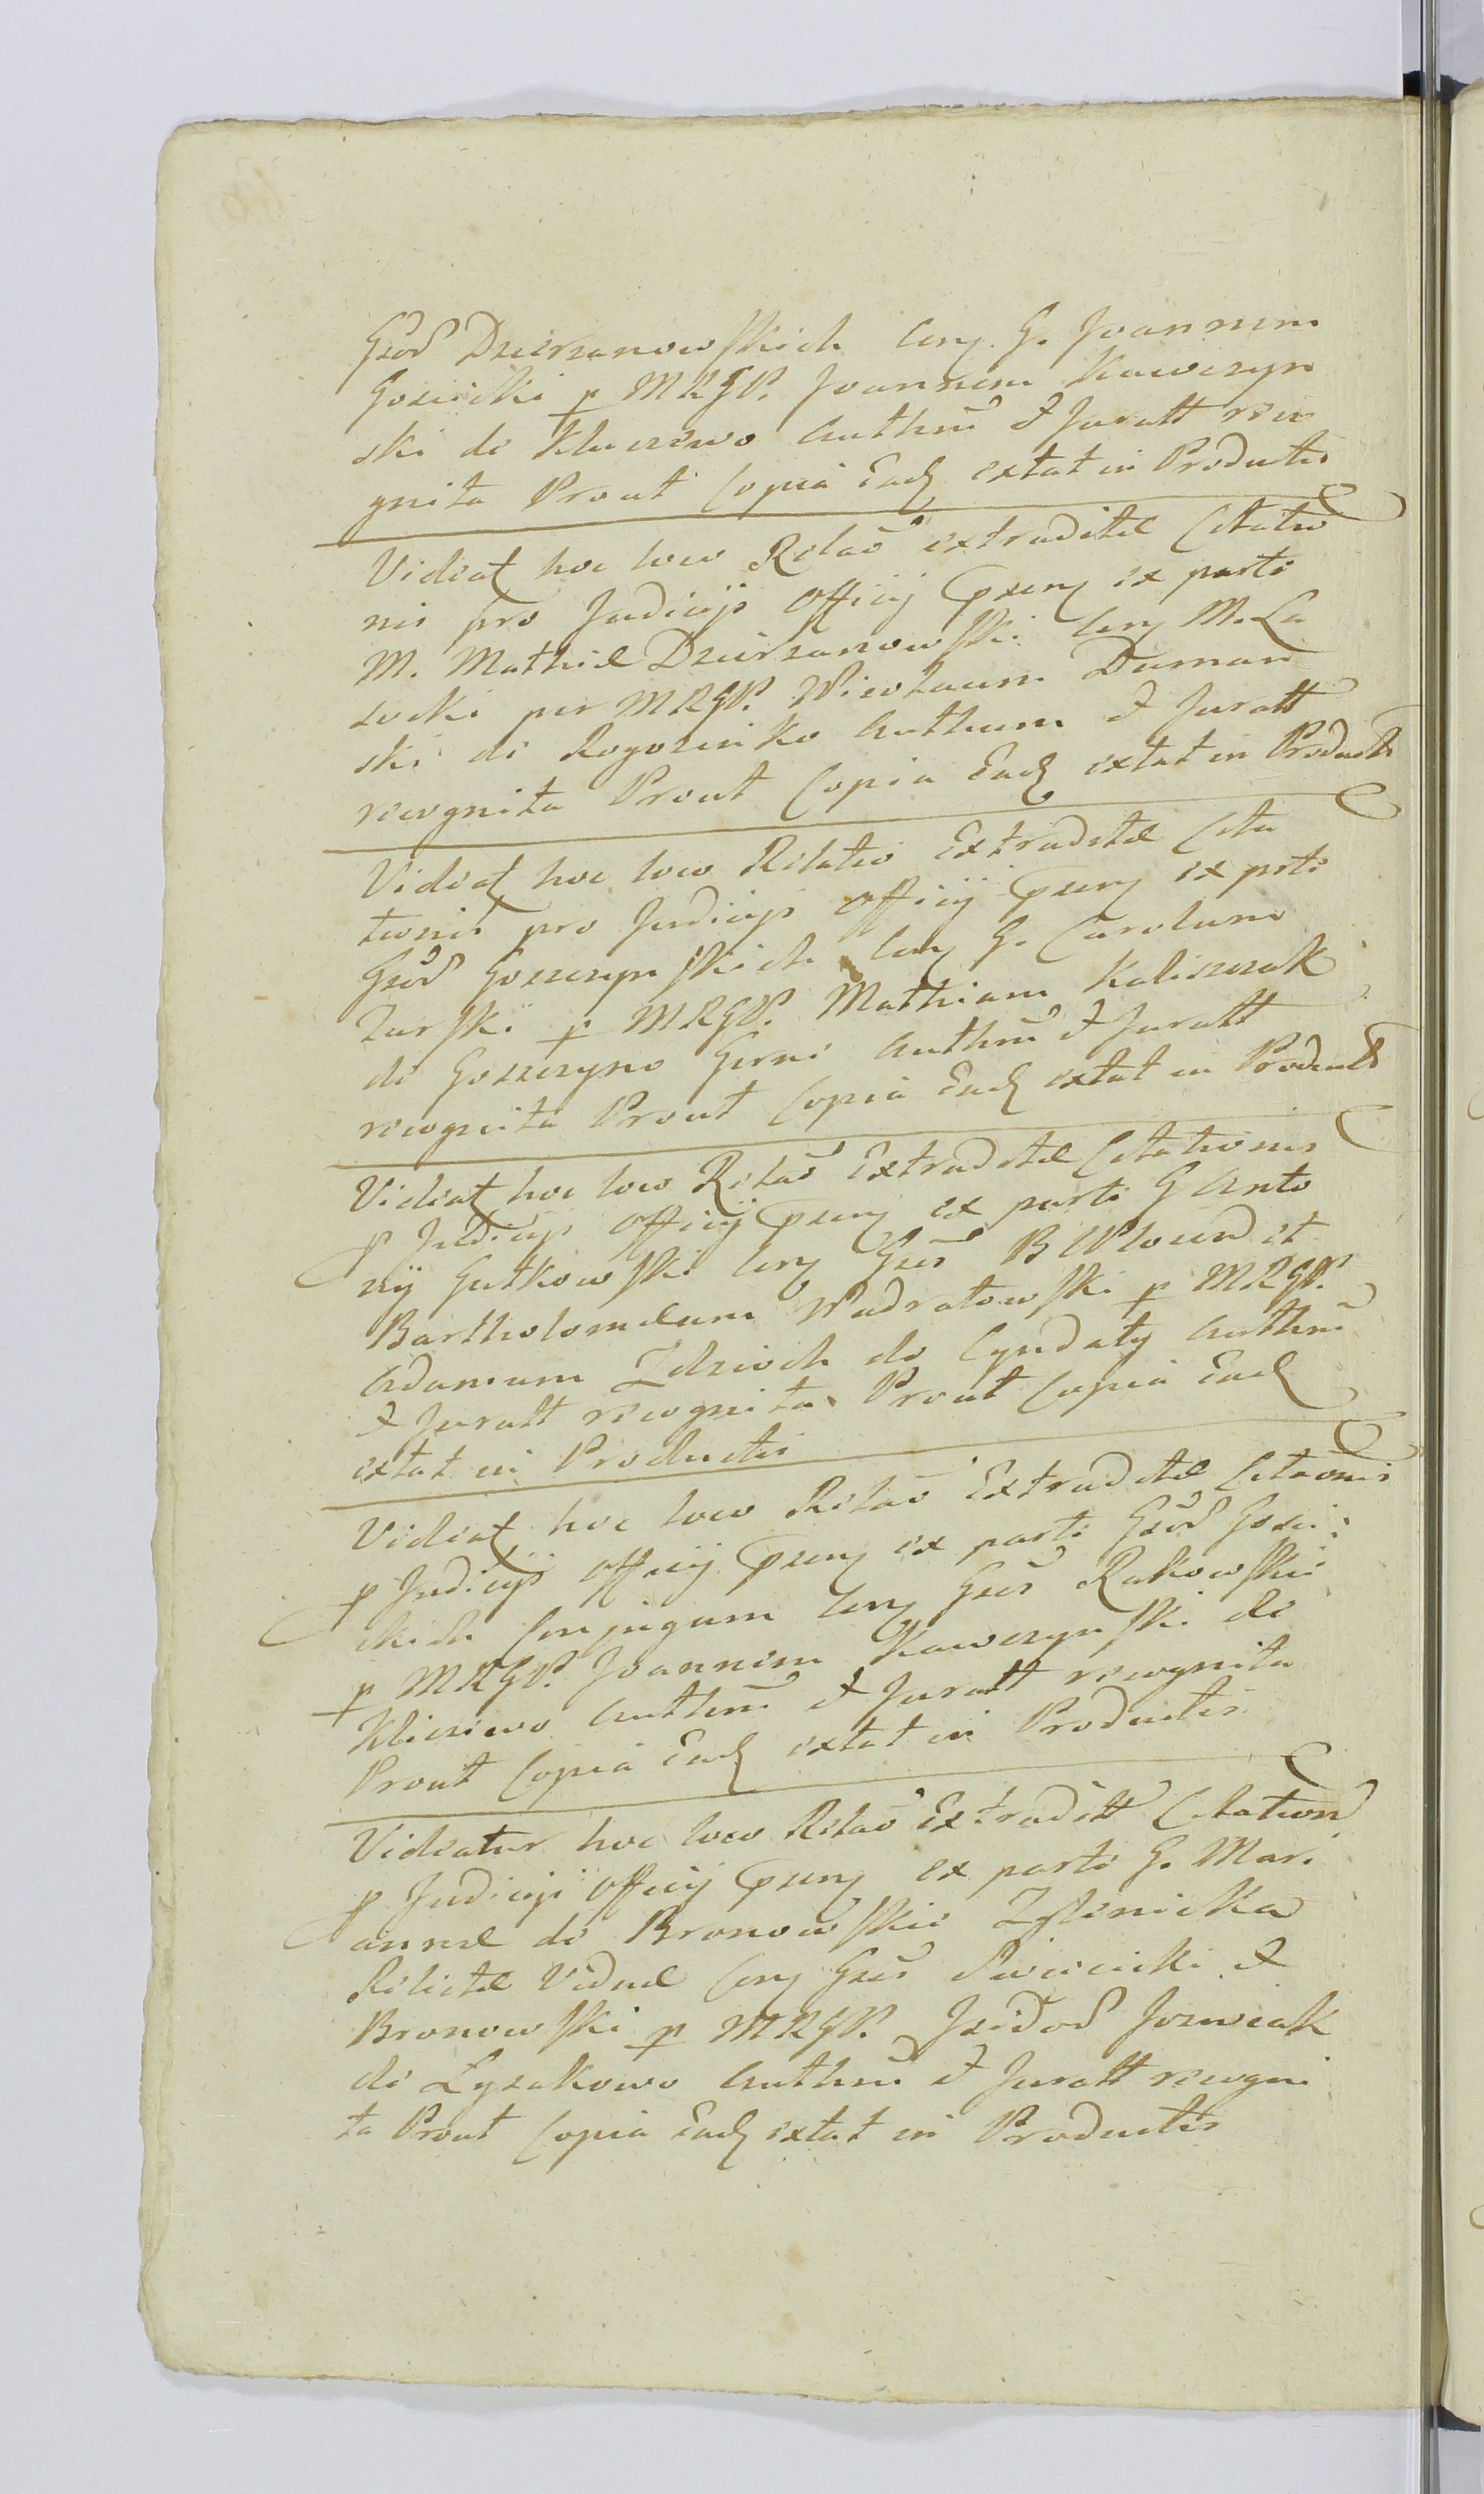 Gsōd Dzierzanowskich Cnq. G. Joannem
Gosicki p MRGP. Joannem Kawczyn
ski de Kluczewo Authm̄ & Juratt reco
gnita Prout Copia Ead extat in Productis
Videat hoc loco Relaō extraditæ Citatio
nis pro Judicijs Officij Pxnq ex parte
M. Mathiæ Dzierzanowski Cnq M. La
socki per MRGP. Nicolaum Duman
ski de Rogozinko Authum & Juratt
recognita Prout Copia Ead extat in Productis
Videat hoc loco Relatio Extraditæ Cita
tionis pro Judicijs Officij Pxnq ex prte
Gsōd Goszczynskich Cnq G. Carolum
Turski p MRGP. Mathiam Kaliszczak
de Goszczyno Gorne Authm̄ & Juratt
recognita Prout Copia Ead extat in Productis
Videat hoc loco Relaō Extraditæ Citationis
p Judicijs Officij Pxnq ex parte G Anto
nij Gutkowski Cnq Gsōs B
Bartholomæum Nadratowski p MRGP.
Adamum Zdzioch de Authm̄
& Juratt recognita Prout Copia Ead
extat in Productis
Videat hoc loco Relaō Extraditæ Citaōnis
p Judicijs Officij Pxnq ex parte Gsōd Gosi:
ckich Conjugum Cnq Gsōs Rakowskie
p MRGP. Joannem Kawczynski de
Kliczewo Authm̄ & Juratt recognita
Prout Copia Ead extat in Productis
Videatur hoc loco Relaō Extraditt Citation
p Judicijs Officij Pxnq ex parte G. Mari
annæ de Bronowskie Zglenicka
Relictæ Viduæ Cnq Gsōs Swiecicki &
Bronowski p MRGP. Jzidod Jozwiak
de Łyzakowo Authm̄ & Juratt recogni
ta Prout Copia Ead extat in Productis